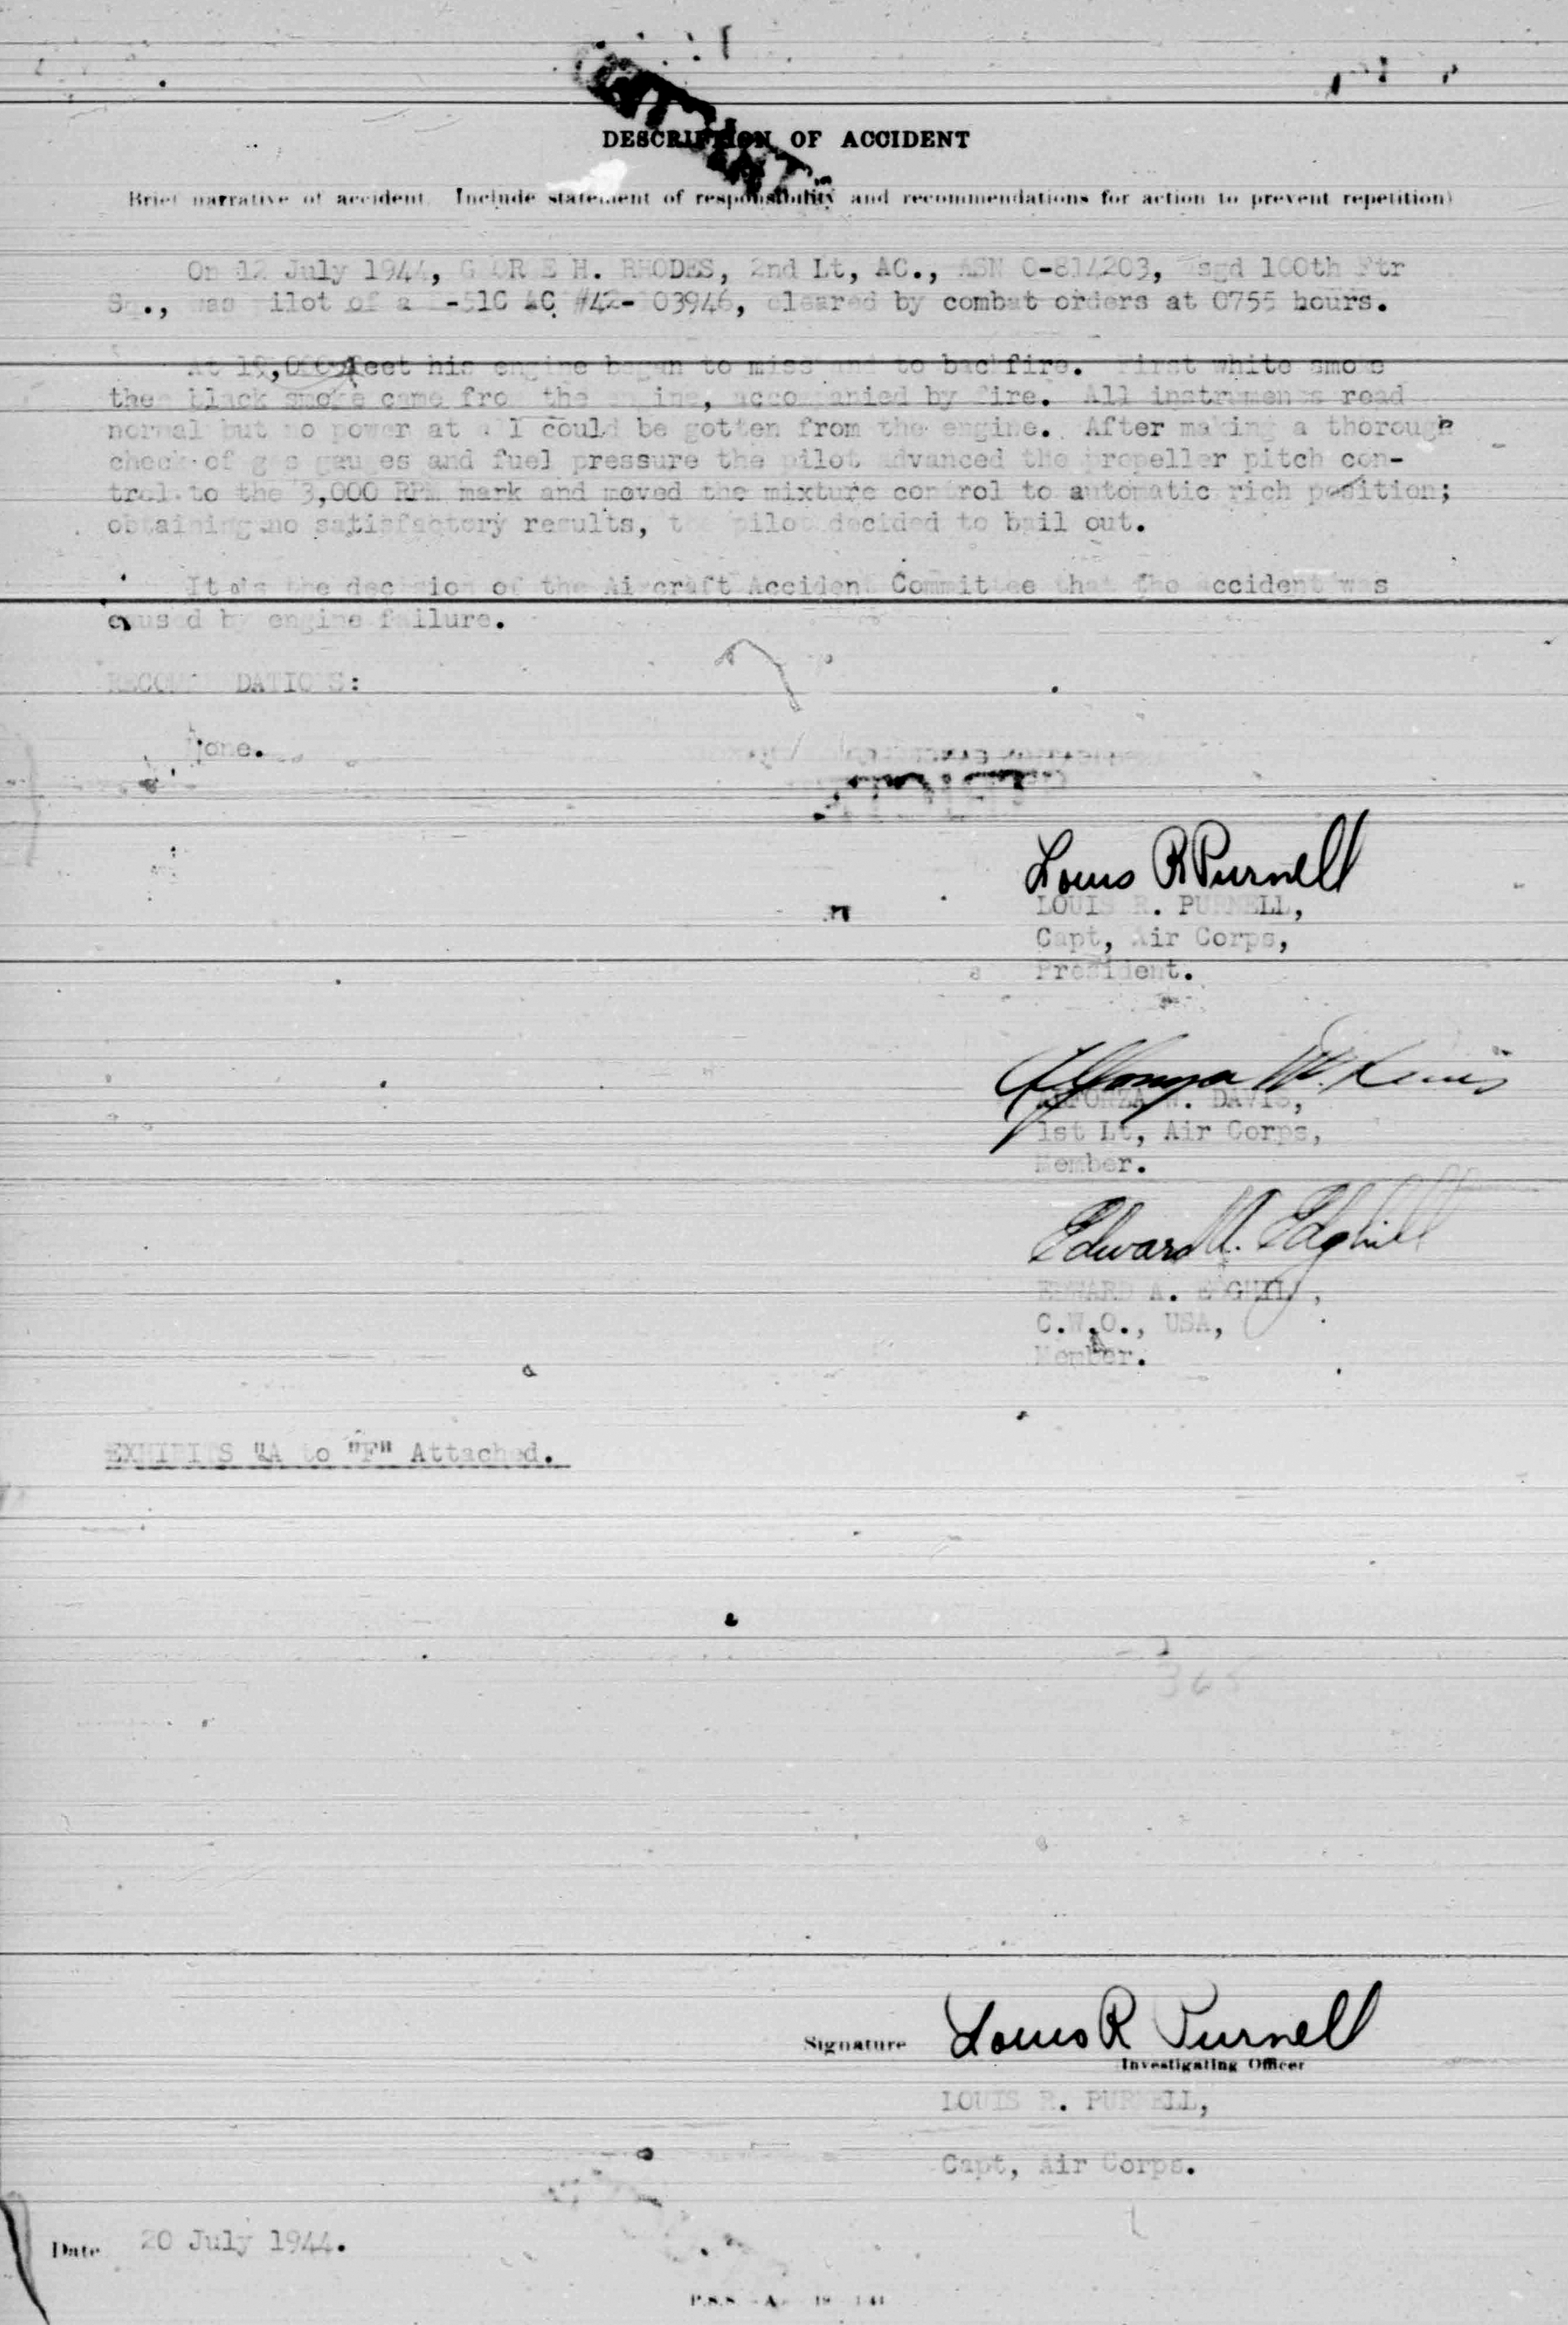 DESCRIPTION OF ACCIDENT
Brief narrative of accident. Include statement of responsibility and recommendations for action to prevent repetition)
On 12 July 1944, GEORGE H. RHODES, 2nd Lt, AC., ASN O-814203, asgd 100th Ftr
Sq., was pilot of a P-51C AC #42-103946, cleared by combat orders at 0755 hours.
At feet his engine began to miss and to backfire. First white smoke
then black smoke came from the engine, accompanied by fire. All instruments read
normal but no power at all could be gotten from the engine. After making a thorough
check of gas gauges and fuel pressure the pilot advanced the propeller pitch con-
trol to the 3,000 RPM mark and moved the mixture control to automatic rich position;
obtaining no satisfactory results, the pilot decided to bail out.
It is the decision of the Aircraft Accident Committee that the accident was
caused by engine failure.
RECOMMENDATIONS:
None.
Louis R Purnell
LOUIS R. PURNELL,
Capt, Air Corps,
President.
Alfonza W. Davis
ALFONZA W. DAVIS,
1st Lt, Air Corps,
Member.
Edward A. Edghill
EDWARD A. EDGHILL,
C.W.O., USA,
Member.
EXHIBITS "A to "F" Attached.
365
Signature Louis R Purnell
Investigating Officer
LOUIS R. PURNELL,
Capt, Air Corps.
Date 20 July 1944.